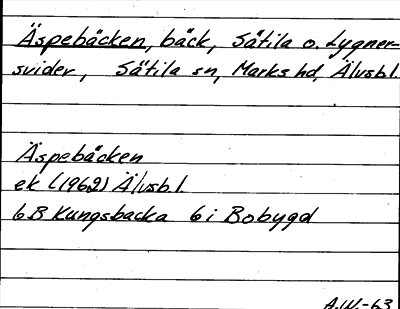 Äspebäcken, bäck, Sätila o. Lygner-
svider, Sätila sn, Marks hd, Älvsb.l.
Äspebäcken
ek (1962) Älvsb.l
6B Kungsbacka 6i Bobygd
A.W.-63